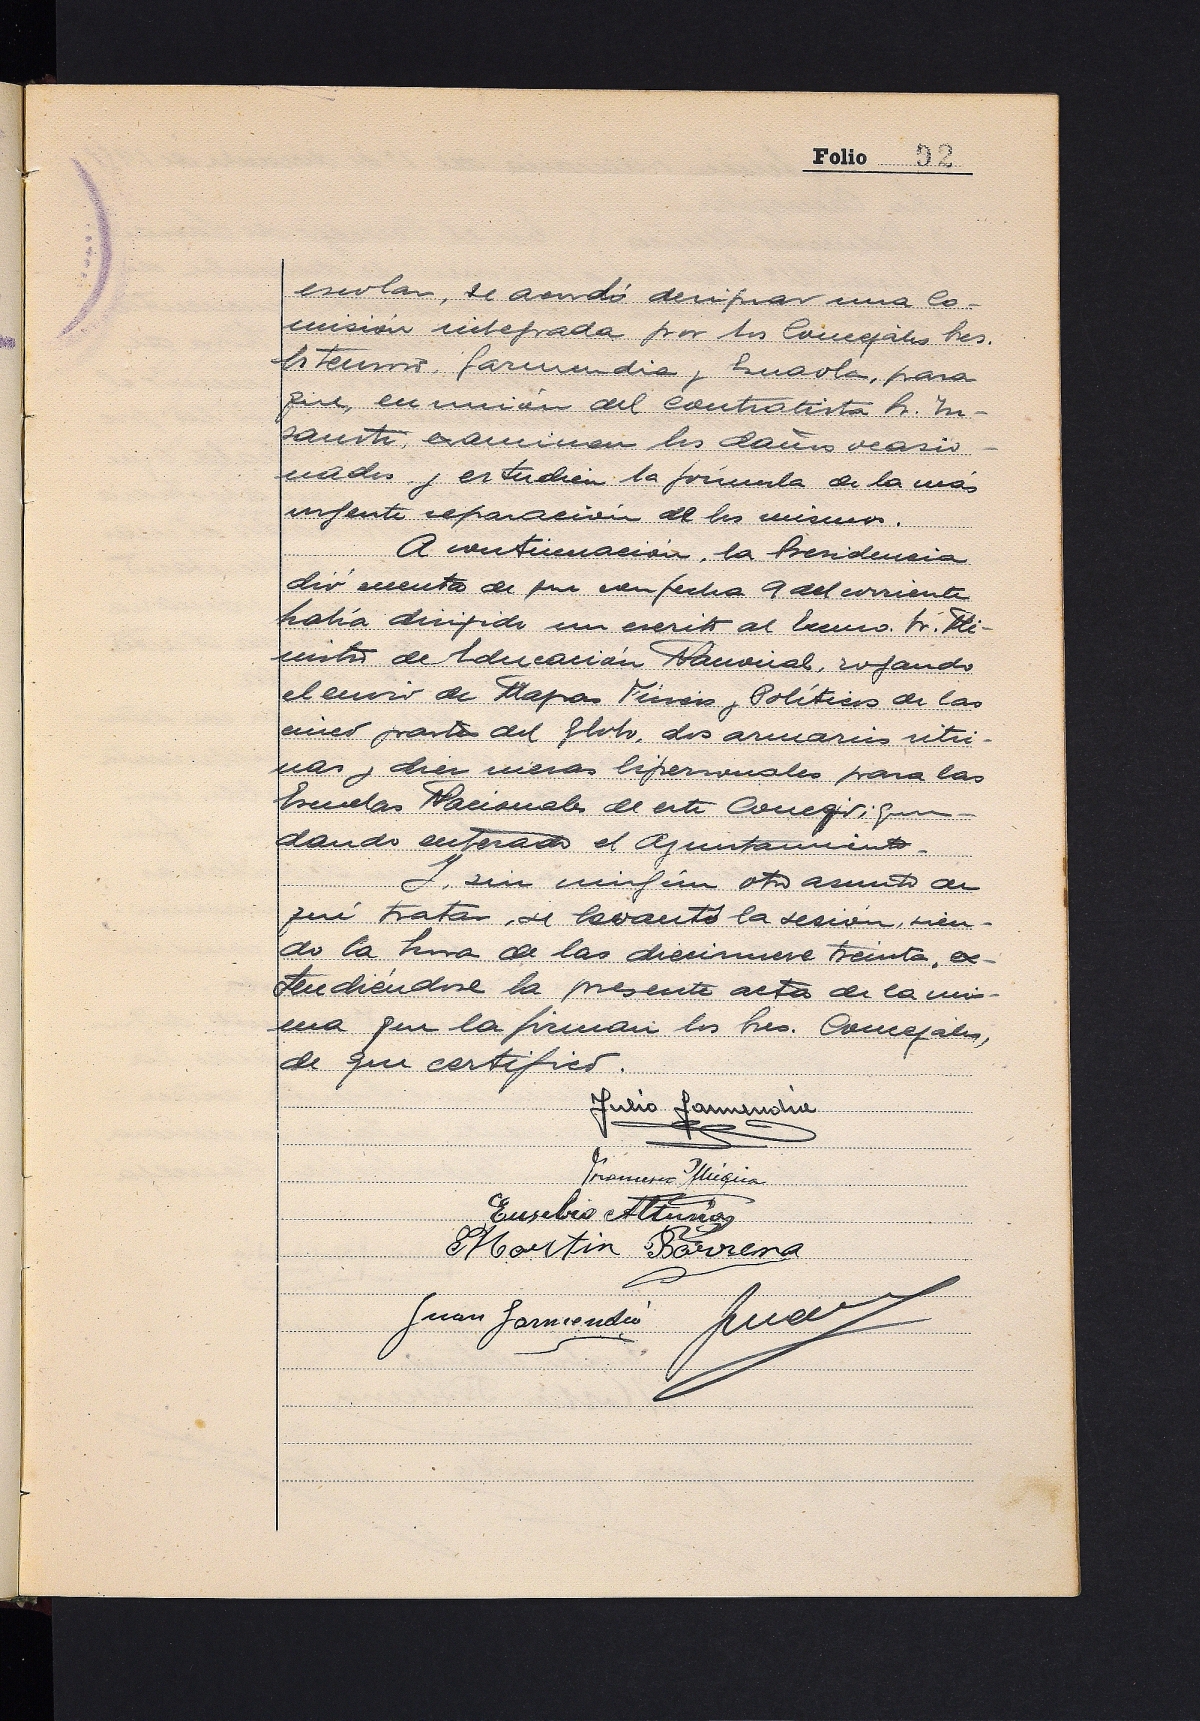 Folio 92
escolar, se acordó designar una Co-
misión integrada por los Concejales Sres.
Garmendia y para
que, en unión del Contratista Sr. In-
sausti, examinen los daños ocasio-
nados y estudien la fórmula de la más
urgente reparación de los mismos.
A continuación, la Presidencia
dió cuenta de que con fecha 9 del corriente
había dirigido un escrito al Excmo. Sr. Mi-
nistro de Educación Nacional, rogando
el envio de Mapas Físicos y Políticos de las
cinco partes del Globo, dos armarios vitri-
nas y diez mesas bipersonales para las
Escuelas Nacionales de este Concejo; que-
dando enterado el Ayuntamiento.
Y, sin ningún otro asunto de
qué tratar, se levantó la sesión, sien-
do la hora de las diecinueve treinta, ex-
tendiéndose la presente acta de la mis-
ma que la firman los Sres. Concejales,
de que certifico.
Julio Garmendia
Francisco Múgica
Eusebio Altuna
Martin Barrena
Juan Garmendia